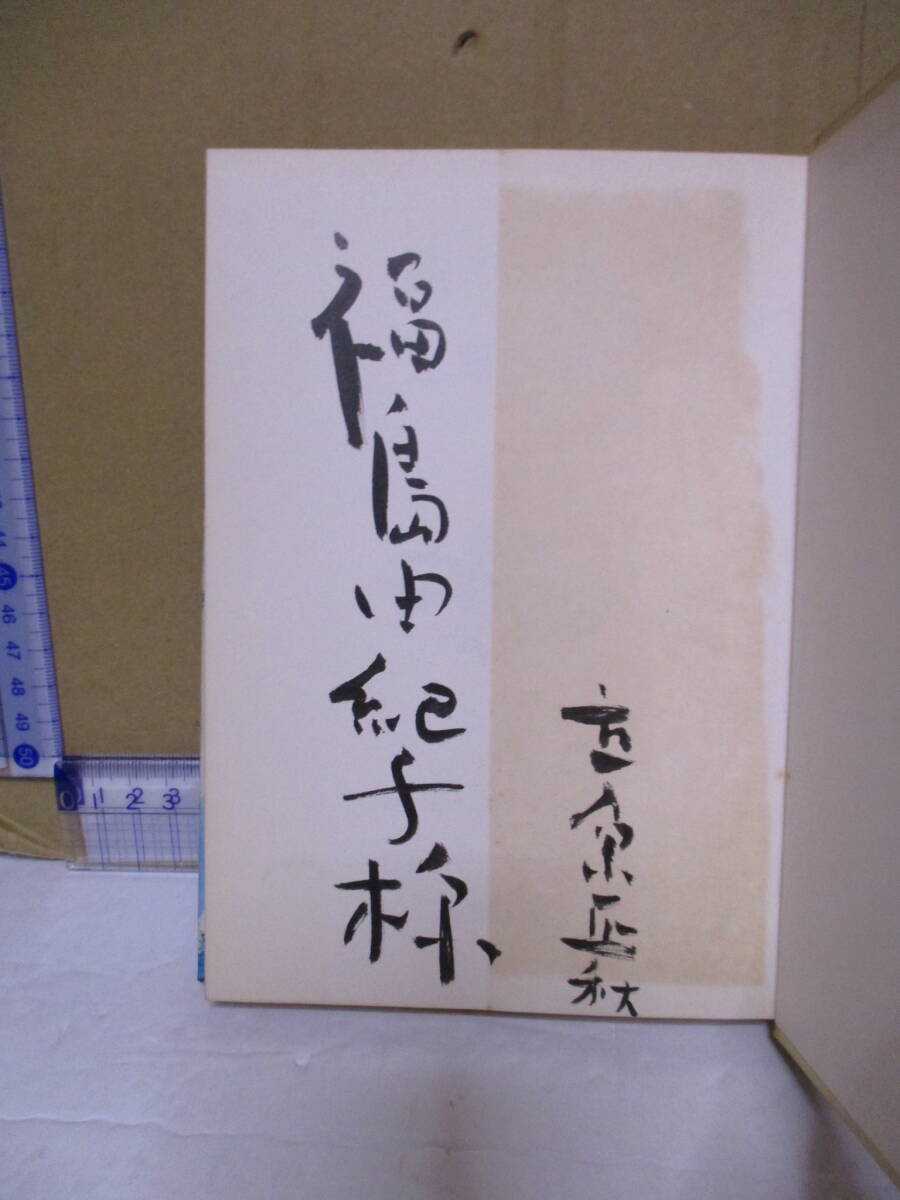 立原正秋
福島由紀子様
45
46
47
48
49
50
0 1 2 3